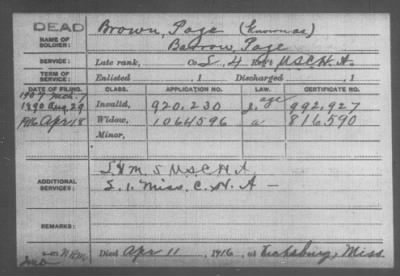 DEAD
NAME OF SOLDIER: Brown, Page (known as)
Barrow, Page
SERVICE: Late rank, Co L, 4 Reg't U.S.C.H.A.
TERM OF SERVICE: Enlisted , 1 Discharged , 1
DATE OF FILING. CLASS. APPLICATION NO. LAW. CERTIFICATE NO.
1907 Mch. 7 age
1890 Aug 29 Invalid, 920.230 992,927
1916 Apr 18 Widow, 1064596 a 816590
Minor,
ADDITIONAL SERVICES: L & M. 5 U.S.C.H.A
L. 1. Miss. C. H. A —
REMARKS:
Died Apr 11, 1916, at Vicksburg, Miss.